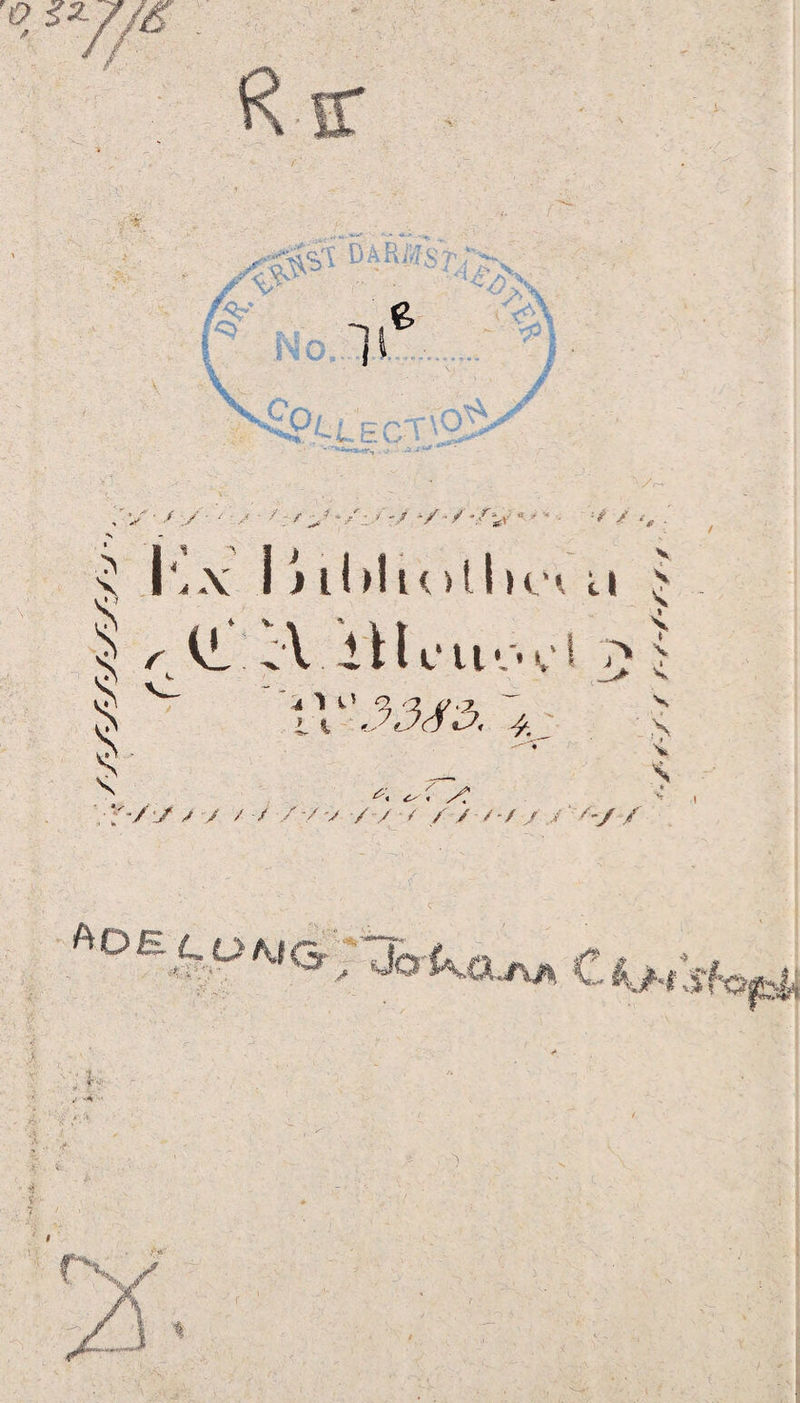 327/B
R II
DR. ERNST DARMSTAEDTER
No. 71 B
COLLECTION
Ex Bibliotheca
C A Meusel
No 3383. 4
ADELUNG, Johann Christoph
X.